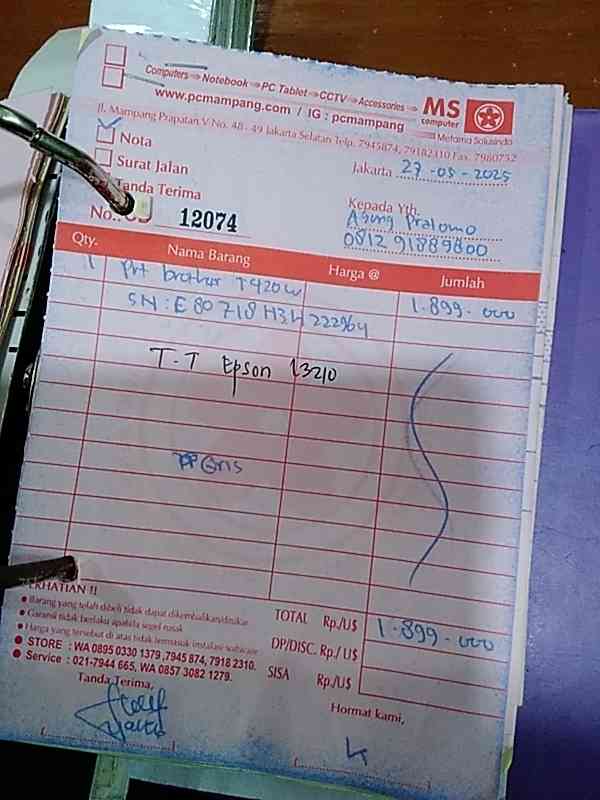 Computers ⇒ Notebook ⇒ PC Tablet ⇒ CCTV ⇒ Accessories ⇒
MS
computer
www.pcmampang.com / IG : pcmampang
Metama Solusindo
Jl. Mampang Prapatan V No. 48 - 49 Jakarta Selatan Telp. 7945874, 79182310 Fax. 7980752
Nota
Surat Jalan
Tanda Terima
Jakarta 27 - 05 - 2025
Kepada Yth.
Agung Pratomo
0812 91889800
No.: 12074
Qty. Nama Barang Harga @ Jumlah
1 Prt brother T420W 1.899.000
SN : E80718H3H222964
T-T Epson L3210
TOTAL Rp./U$ 1.899.000
DP/DISC. Rp./ U$
SISA Rp./U$
PERHATIAN !!
• Barang yang telah dibeli tidak dapat dikembalikan/ditukar
• Garansi tidak berlaku apabila segel rusak
• Harga yang tersebut di atas tidak termasuk instalasi software
• STORE : WA 0895 0330 1379 ,7945 874, 7918 2310.
• Service : 021-7944 665, WA 0857 3082 1279.
Tanda Terima,
Hormat kami,